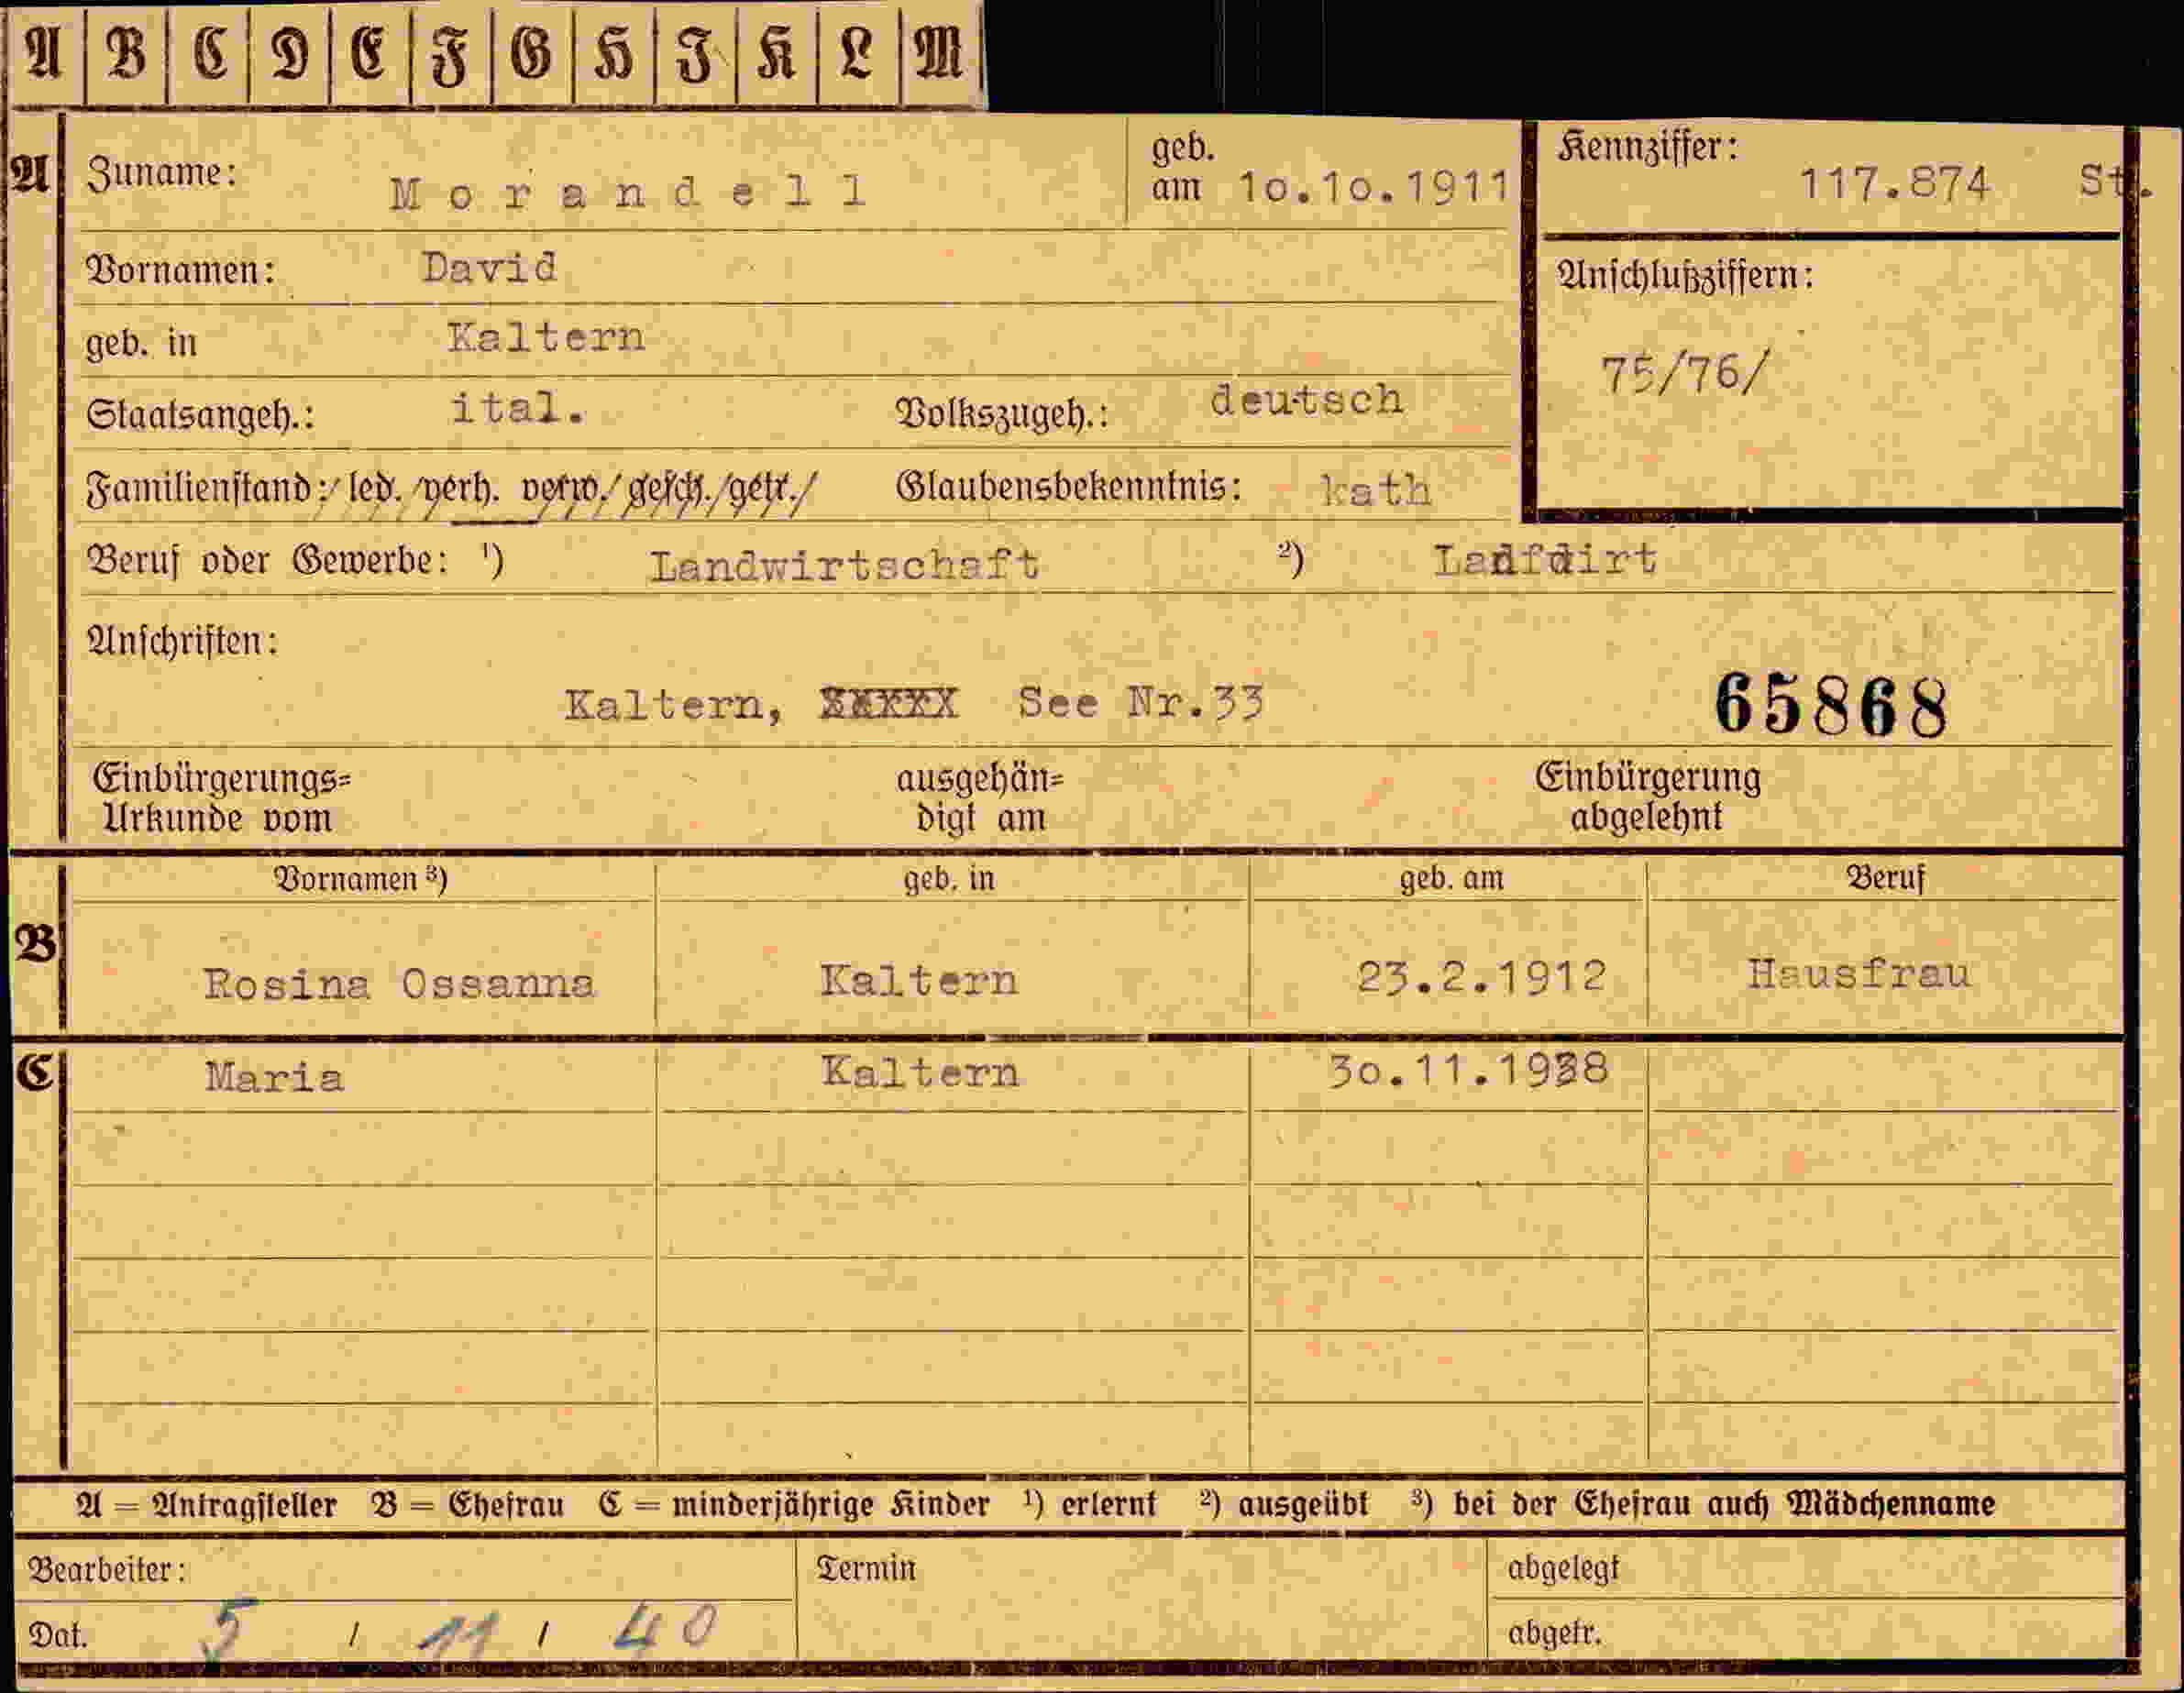 A B C D E F G H I K L M
A Zuname: Morandell geb. am 10.10.1911 Kennziffer: 117.874 St.
Vornamen: David
Anschlußziffern:
geb. in Kaltern
75/76/
Staatsangeh.: ital. Volkszugeh.: deutsch
Familienstand: led. verh. verw. gesch. getr. Glaubensbekenntnis: kath
Beruf oder Gewerbe: ¹) Landwirtschaft ²)
Anschriften:
Kaltern, See Nr.33 65868
Einbürgerungs= ausgehän= Einbürgerung
Urkunde vom digt am abgelehnt
Vornamen ³) geb. in geb. am Beruf
B Rosina Ossanna Kaltern 23.2.1912 Hausfrau
C Maria Kaltern 30.11.1938
A = Antragsteller B = Ehefrau C = minderjährige Kinder ¹) erlernt ²) ausgeübt ³) bei der Ehefrau auch Mädchenname
Bearbeiter: Termin abgelegt
Dat. 5 / 11 / 40 abgetr.